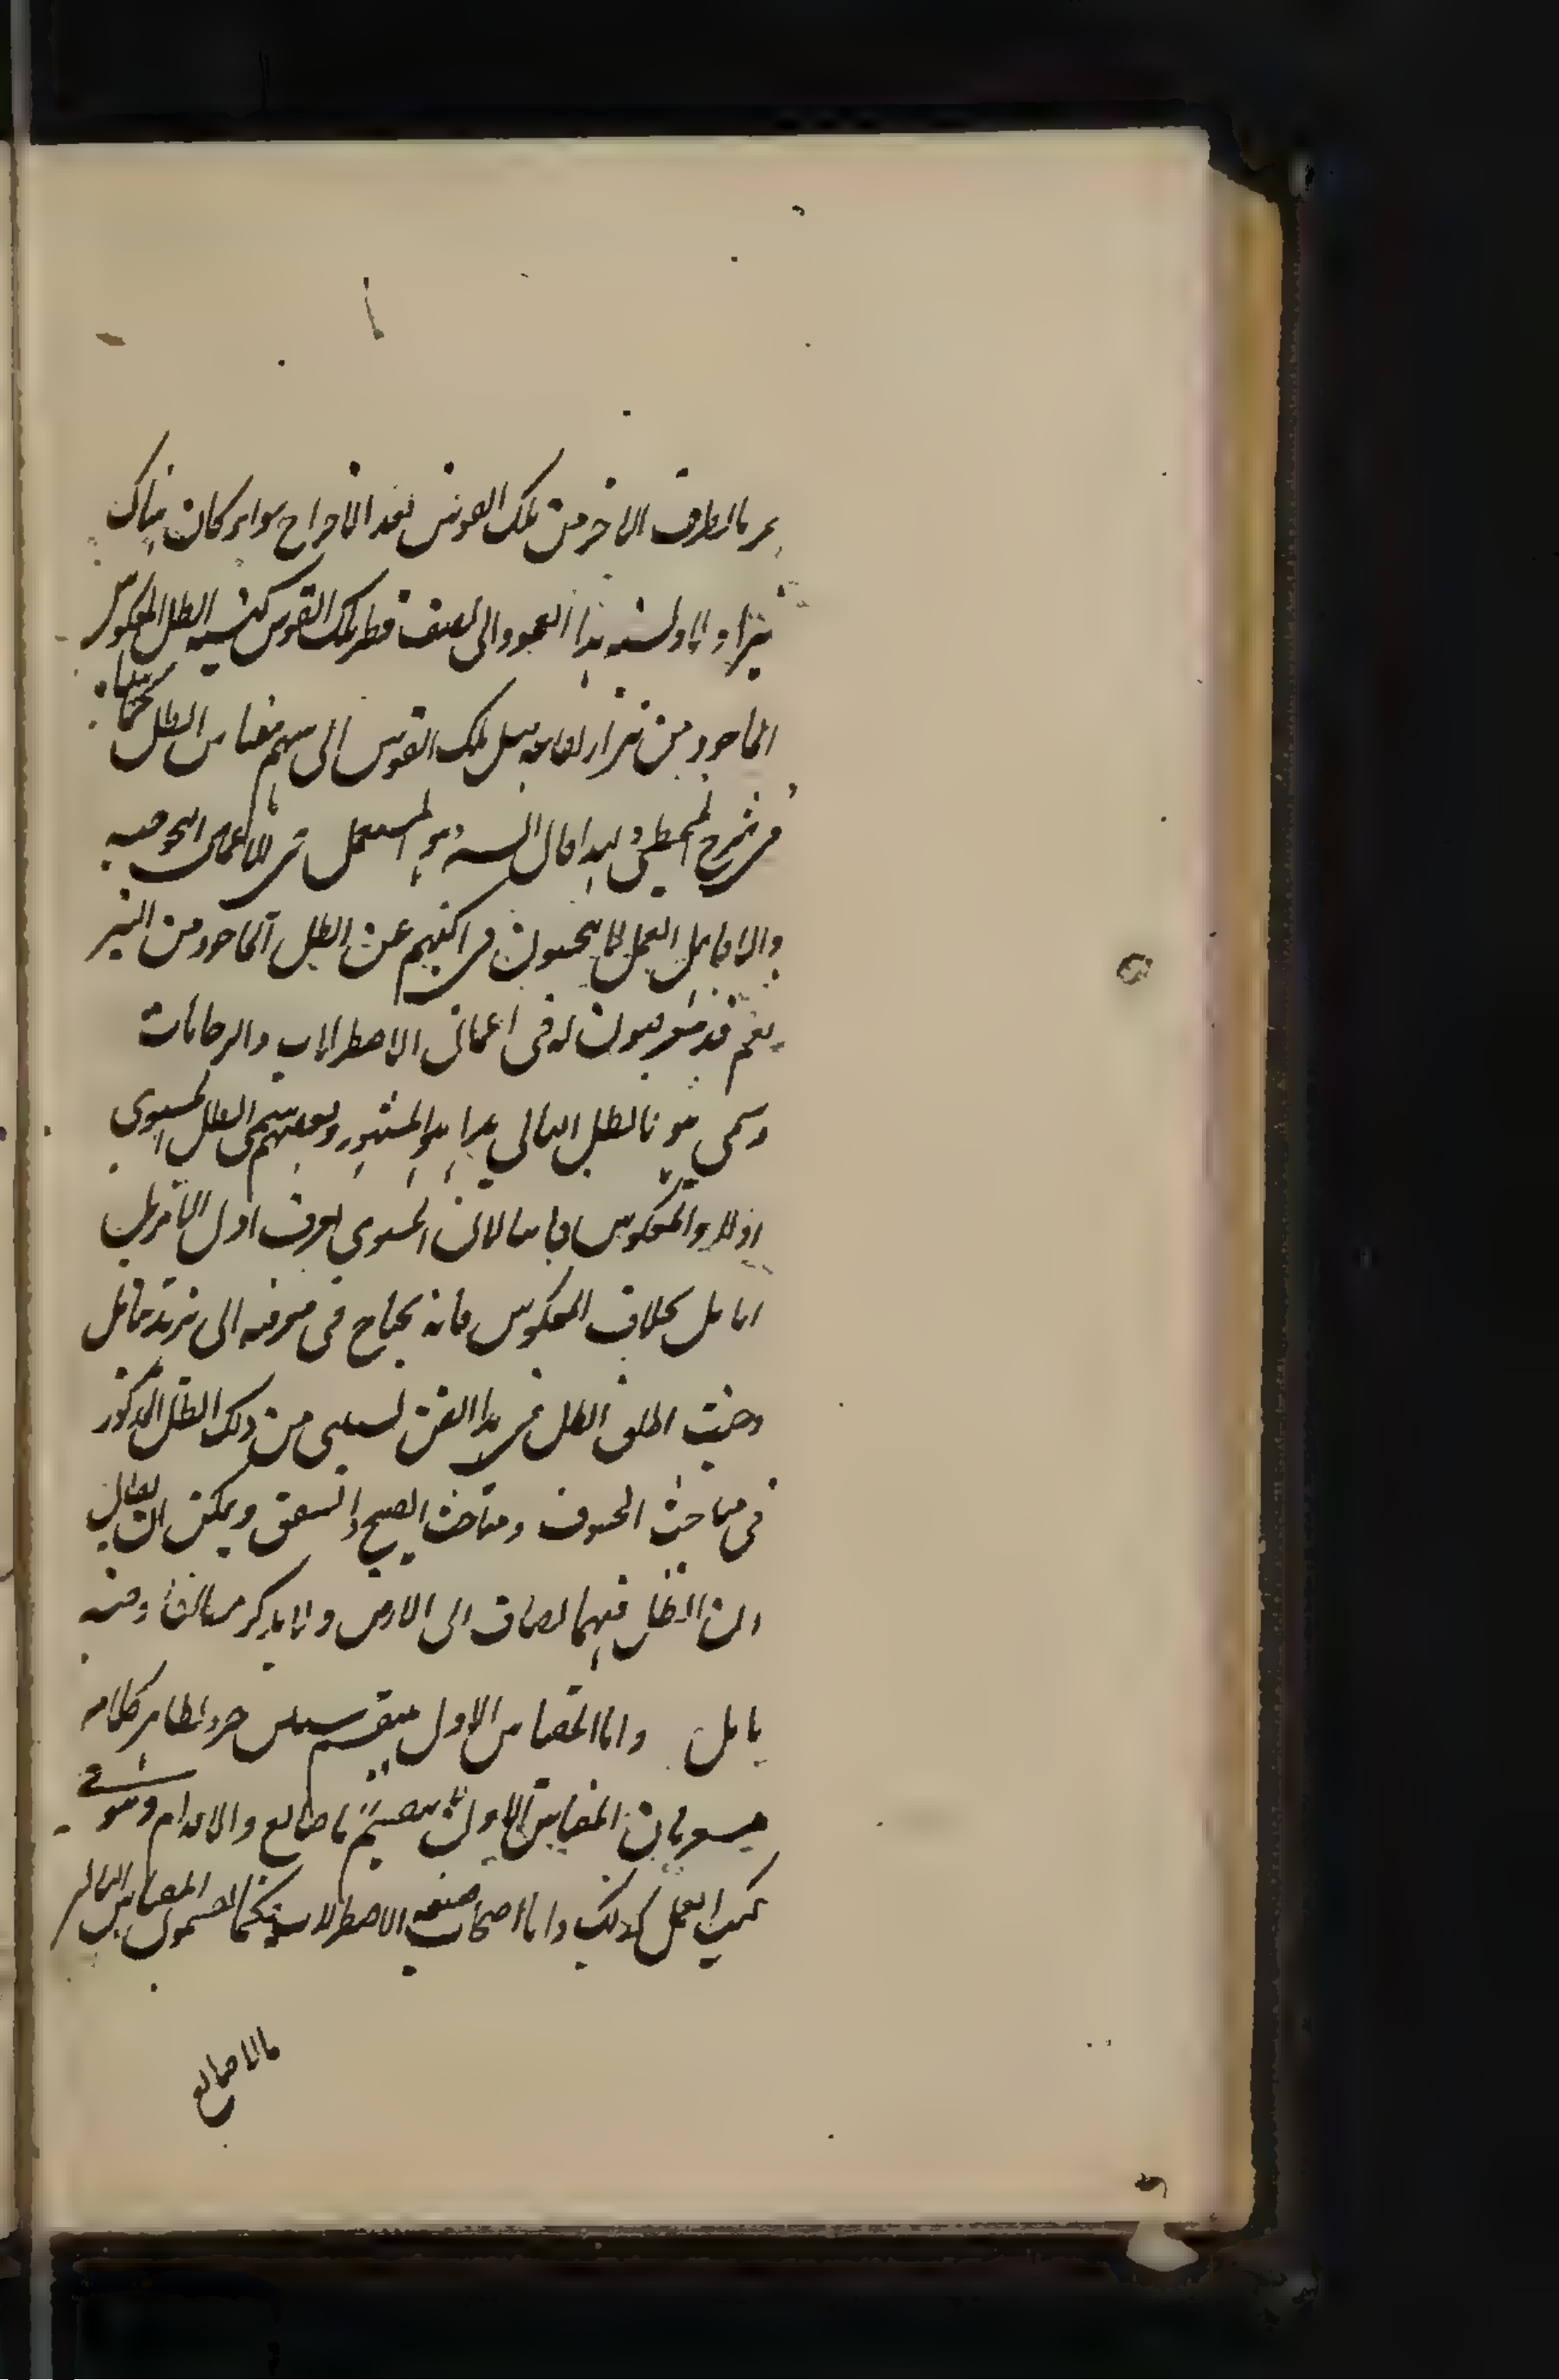 يمر بالطرف الاخر من تلك القوس بعد الاخراج سواء كان هناك
نير او لا ونسبة هذا العمود الى نصف قطر تلك القوس كنسبة الظل المعكوس
الماخوذ من نير ارتفاعه مثل تلك القوس الى سهم مقياس الظل
في شرح المجسطي ولهذا قال هو المستعمل في الاعمال النجومية
والا فاهل العمل لا يبحثون في اكثرهم عن الظل الماخوذ من النير
نعم قد يتعرضون له في اعمال الاصطرلاب والرخامات
وسمي هو بالظل الثاني هذا هو المشهور وبعضهم سمى الظل المستوي
اولا والمعكوس ثانيا لان المستوي يعرف اول الامر بلا
تامل بخلاف المعكوس فانه يحتاج في معرفته الى مزيد تامل
وحيث اطلق الظل في هذا الفن من ذلك الظل المذكور
في مباحث الخسوف ومباحث الصبح والشفق ويمكن ان يقال
ان الظل فيهما يضاف الى الارض ولا يذكر مطلقا وفيه
تامل واما المقياس الاول فينقسم ظاهر كلامه
بان المقياس الاول ينقسم باصابع والاقدام وهو في
كتب العمل كذلك واما اصحاب صنعة الاصطرلاب فكما يقسمون المقياس الثاني
بالاصابع